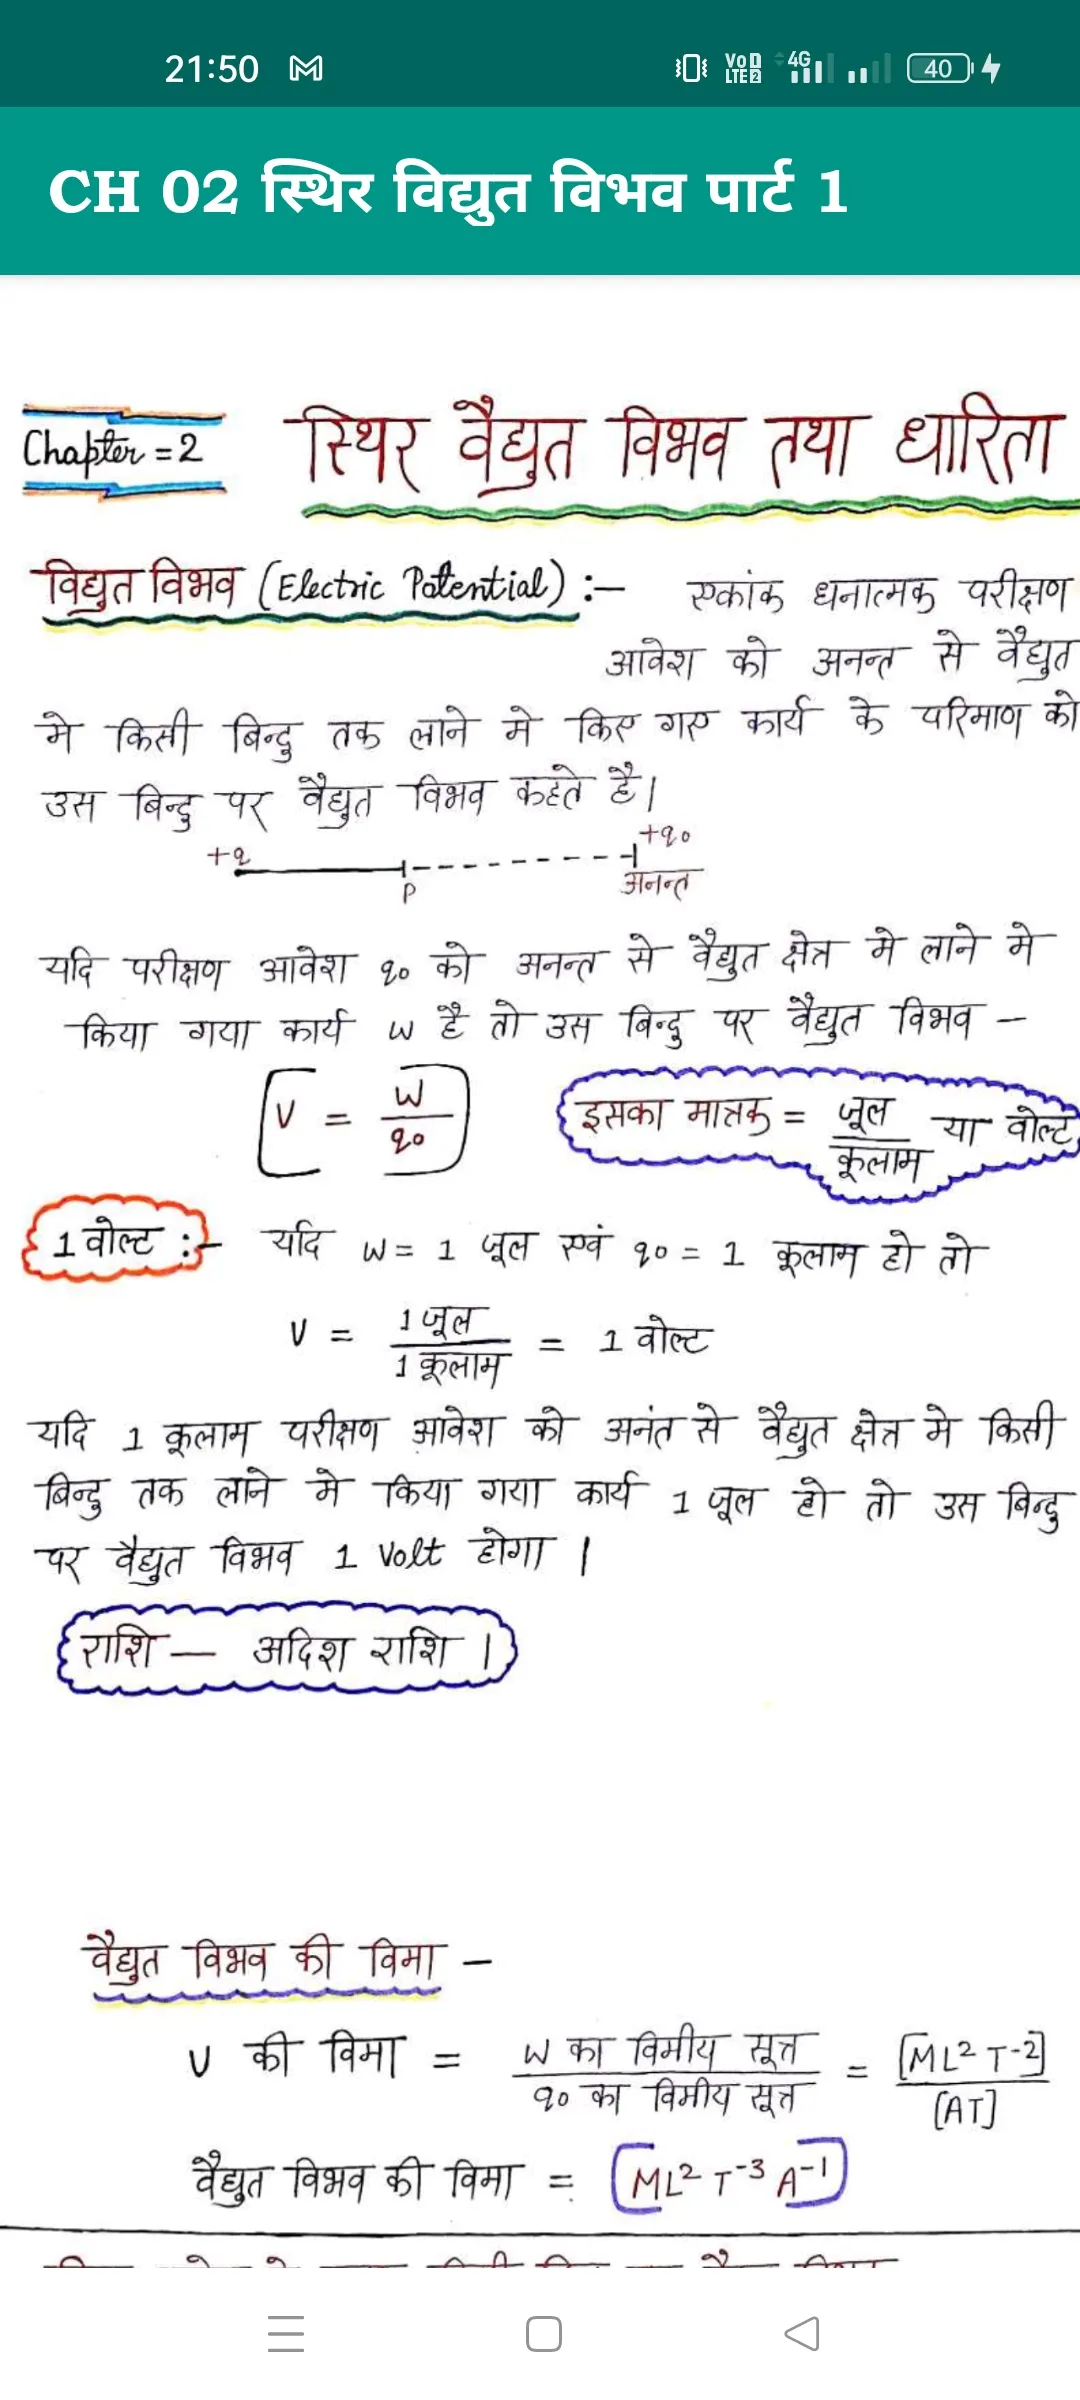 21:50
VoD LTE 2 4G 40
CH 02 स्थिर विद्युत विभव पार्ट 1
Chapter = 2 स्थिर वैद्युत विभव तथा धारिता
विद्युत विभव (Electric Potential) :- एकांक धनात्मक परीक्षण
आवेश को अनन्त से वैद्युत
मे किसी बिन्दु तक लाने मे किए गए कार्य के परिमाण को
उस बिन्दु पर वैद्युत विभव कहते है।
+q P +q₀
अनन्त
यदि परीक्षण आवेश q₀ को अनन्त से वैद्युत क्षेत्र मे लाने मे
किया गया कार्य W है तो उस बिन्दु पर वैद्युत विभव –
V = W / q₀
इसका मात्रक = जूल / कूलाम या वोल्ट
1 वोल्ट :- यदि W = 1 जूल एवं q₀ = 1 कूलाम हो तो
V = 1 जूल / 1 कूलाम = 1 वोल्ट
यदि 1 कूलाम परीक्षण आवेश को अनंत से वैद्युत क्षेत्र मे किसी
बिन्दु तक लाने मे किया गया कार्य 1 जूल हो तो उस बिन्दु
पर वैद्युत विभव 1 Volt होगा ।
राशि — अदिश राशि ।
वैद्युत विभव की विमा –
V की विमा = W का विमीय सूत्र / q₀ का विमीय सूत्र = [ML² T⁻²] / [AT]
वैद्युत विभव की विमा = [ML² T⁻³ A⁻¹]